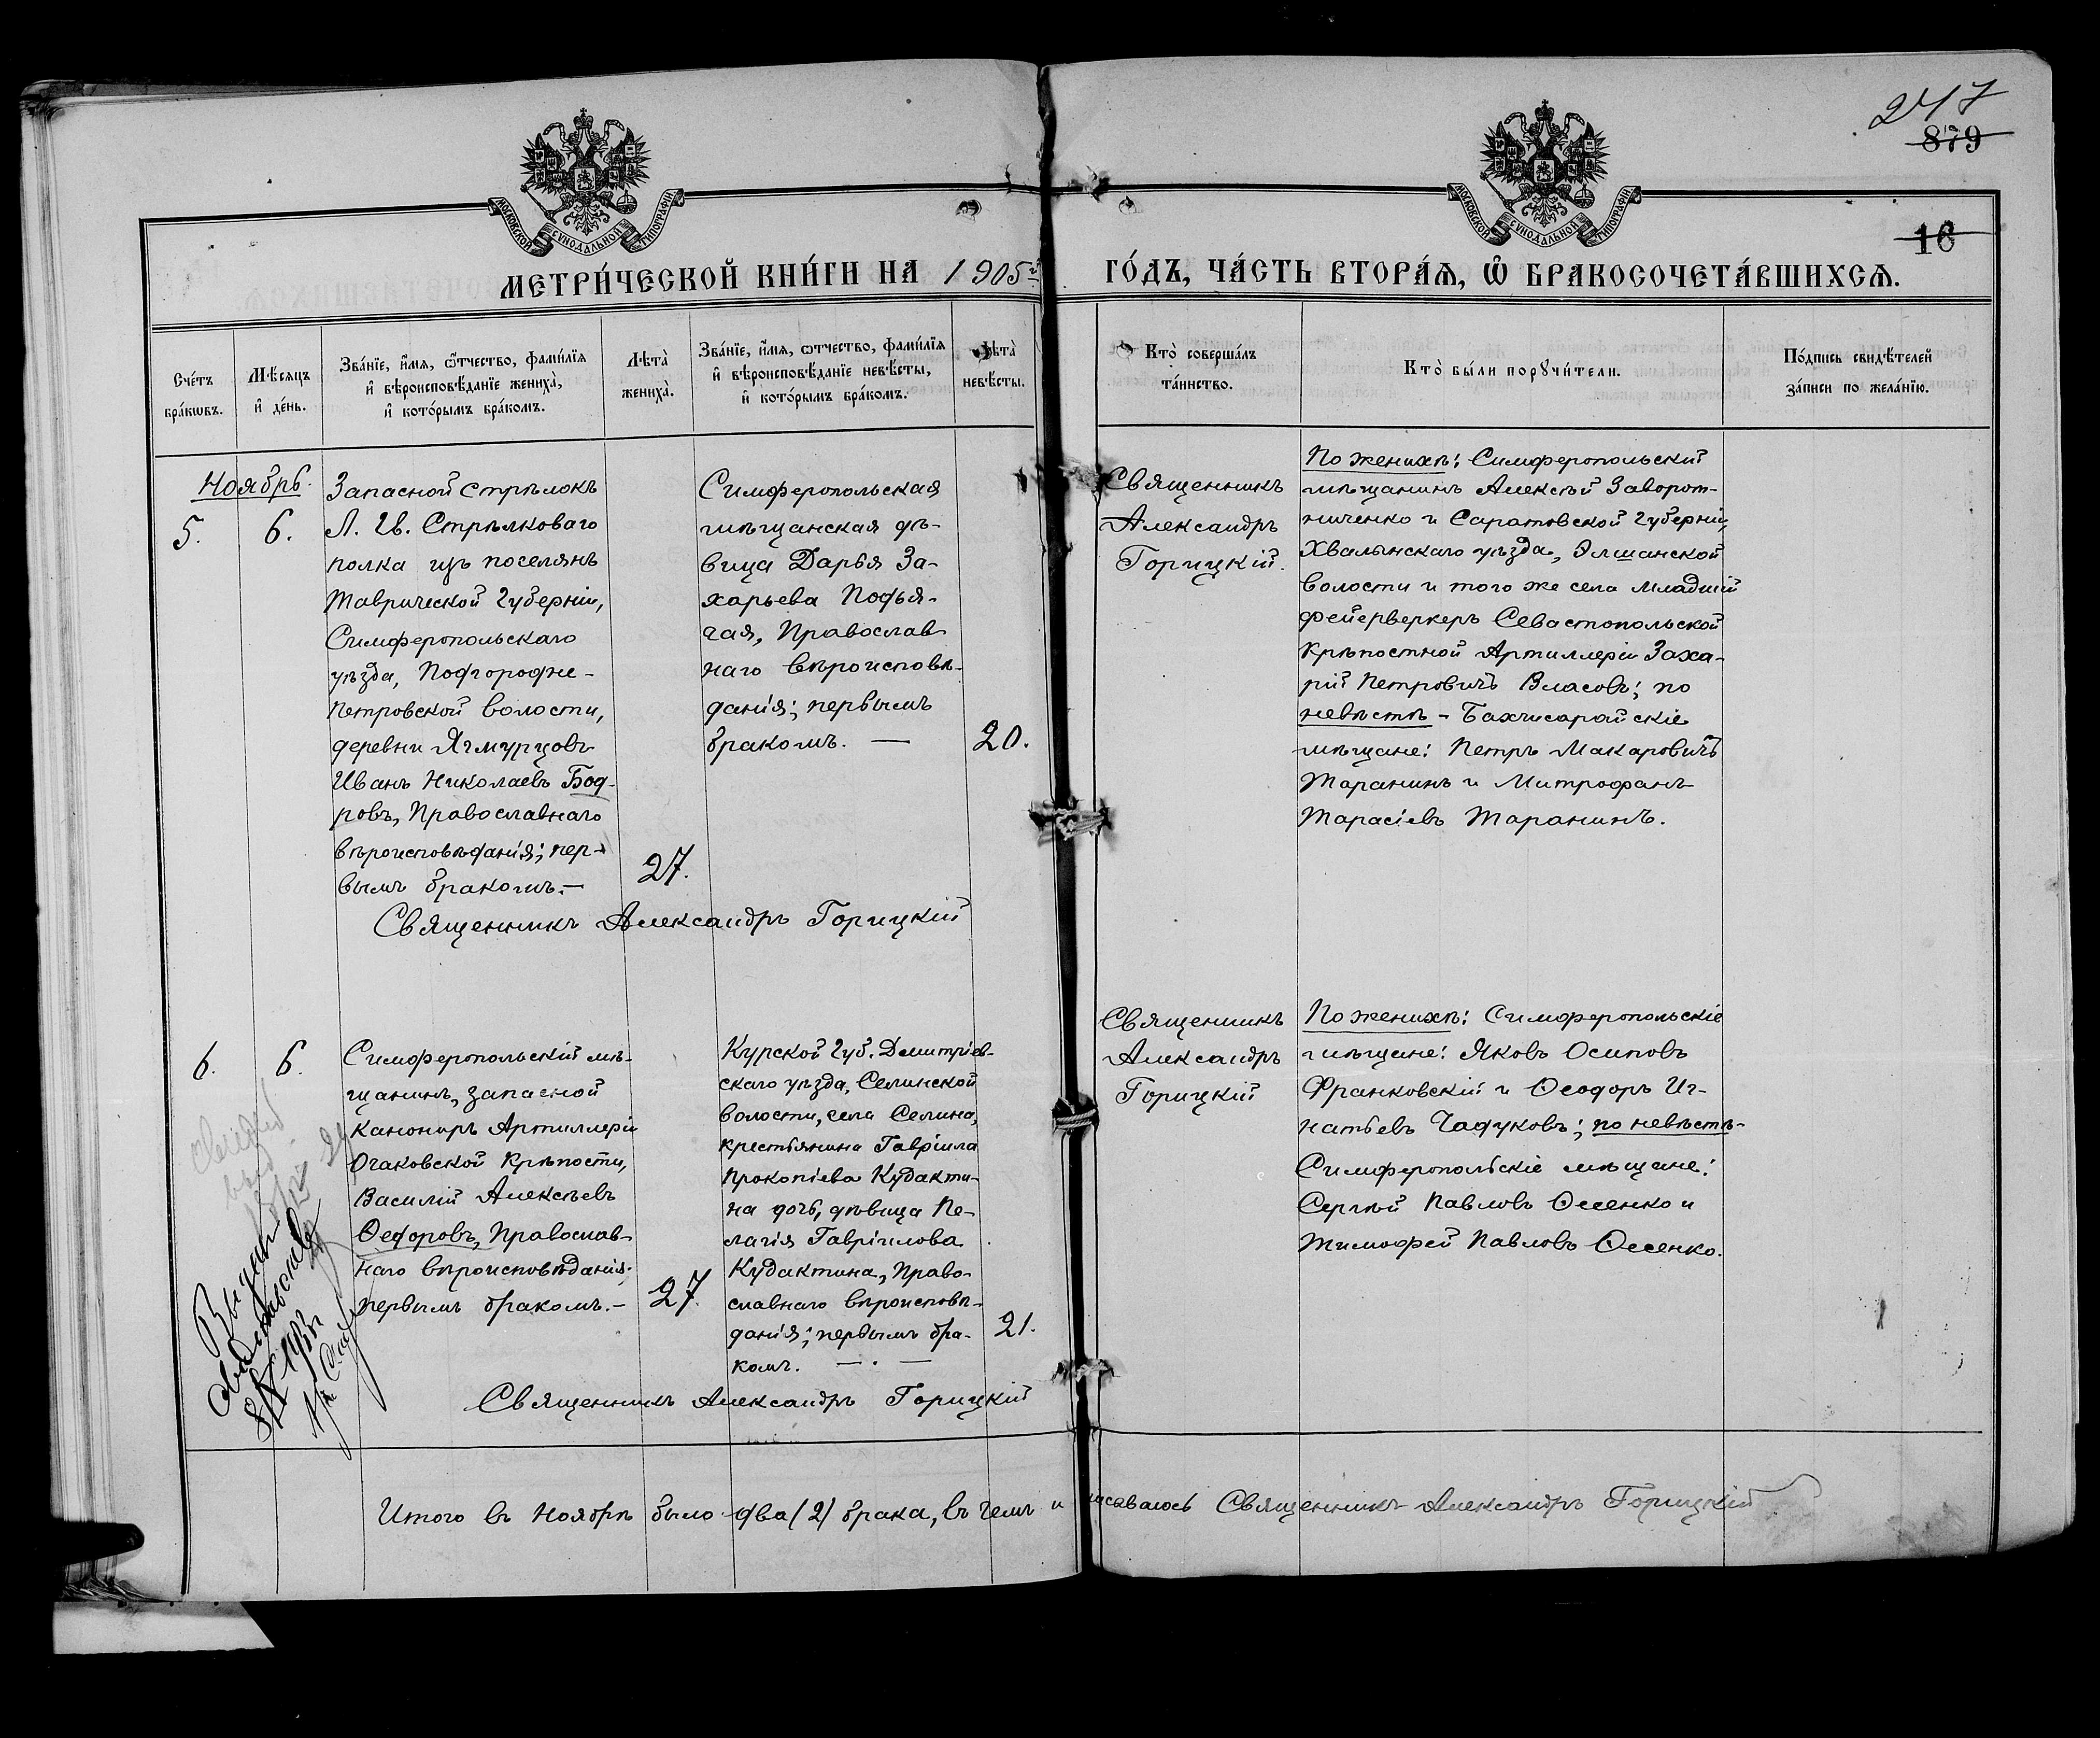 247
879
16
МОСКОВСКОЙ СѴНОДАЛЬНОЙ ТИПОГРАФІИ
МОСКОВСКОЙ СѴНОДАЛЬНОЙ ТИПОГРАФІИ
МЕТРИ́ЧЕСКОЙ КНИ́ГИ НА 1905й ГО́ДЪ, ЧА́СТЬ ВТОРА́Ѧ, Ѽ БРАКОСОЧЕТА́ВШИХСѦ.
Сче́тъ
бра́кѡвъ.
Мѣ́сѧцъ
и҆ де́нь.
Зва́нїе, и҆́мѧ, ѻ҆́тчество, фами́лїѧ
и҆ вѣроисповѣ́данїе жениха̀,
и҆ кото́рымъ бра́комъ.
Лѣта̀
жениха̀.
Зва́нїе, и҆́мѧ, ѻ҆́тчество, фами́лїѧ
и҆ вѣроисповѣ́данїе невѣ́сты,
и҆ кото́рымъ бра́комъ.
Лѣта̀
невѣ́сты.
Кто̀ соверша́лъ
та́инство.
Кто̀ бы́ли порꙋчи́тели.
По́дпись свидѣ́телей
за́писи по жела́нїю.
Ноябрь.
5.
6.
Запасной стрѣлокъ
Л. Гв. Стрѣлковаго
полка изъ поселянъ
Таврической Губерніи,
Симферопольскаго
уѣзда, Подгородне-
Петровской волости,
деревни Ягмурцовъ
Иванъ Николаевъ Бод-
ровъ, Православнаго
вѣроисповѣданія; пер-
вымъ бракомъ.—
27.
Симферопольская
мѣщанская дѣ-
вица Дарья За-
харьева Подья-
чая, Православ-
наго вѣроисповѣ-
данія; первымъ
бракомъ. —
20.
Священникъ
Александръ
Горицкій.
По женихѣ: Симферопольскій
мѣщанинъ Алексѣй Заворот-
ниченко и Саратовской Губерніи,
Хвалынскаго уѣзда, Элшанской
волости и того же села младшій
фейерверкеръ Севастопольской
Крѣпостной Артиллеріи Заха-
рій Петровичъ Власовъ; по
невѣстѣ - Бахчисарайскіе
мѣщане: Петръ Макаровичъ
Таранинъ и Митрофанъ
Тарасіевъ Таранинъ.
Священникъ Александръ Горицкій
6.
6.
Симферопольскій мѣ-
щанинъ, запасной
Канониръ Артиллеріи
Очаковской Крѣпости,
Василій Алексѣевъ
Ѳедоровъ, Православ-
наго вѣроисповѣданія;
первымъ бракомъ.—
27.
Курской Губ. Дмитріев-
скаго уѣзда, Селинской
волости, села Селина,
крестьянина Гавріила
Прокопіева Кудакти-
на дочь, дѣвица Пе-
лагія Гавріилова
Кудактина, Право-
славнаго вѣроисповѣ-
данія; первымъ бра-
комъ. — . —
21.
Священникъ
Александръ
Горицкій
По женихѣ: Симферопольскіе
мѣщане: Яковъ Осиповъ
Франковскій и Ѳеодоръ Иг-
натьевъ Чадуковъ; по невѣстѣ-
Симферопольскіе мѣщане:
Сергѣй Павловъ Ѳесенко и
Тимофей Павловъ Ѳесенко.
Выдан
Священникъ Александръ Горицкій
Итого въ Ноябрѣ было два (2) брака, въ чемъ и
Священникъ Александръ Горицкій